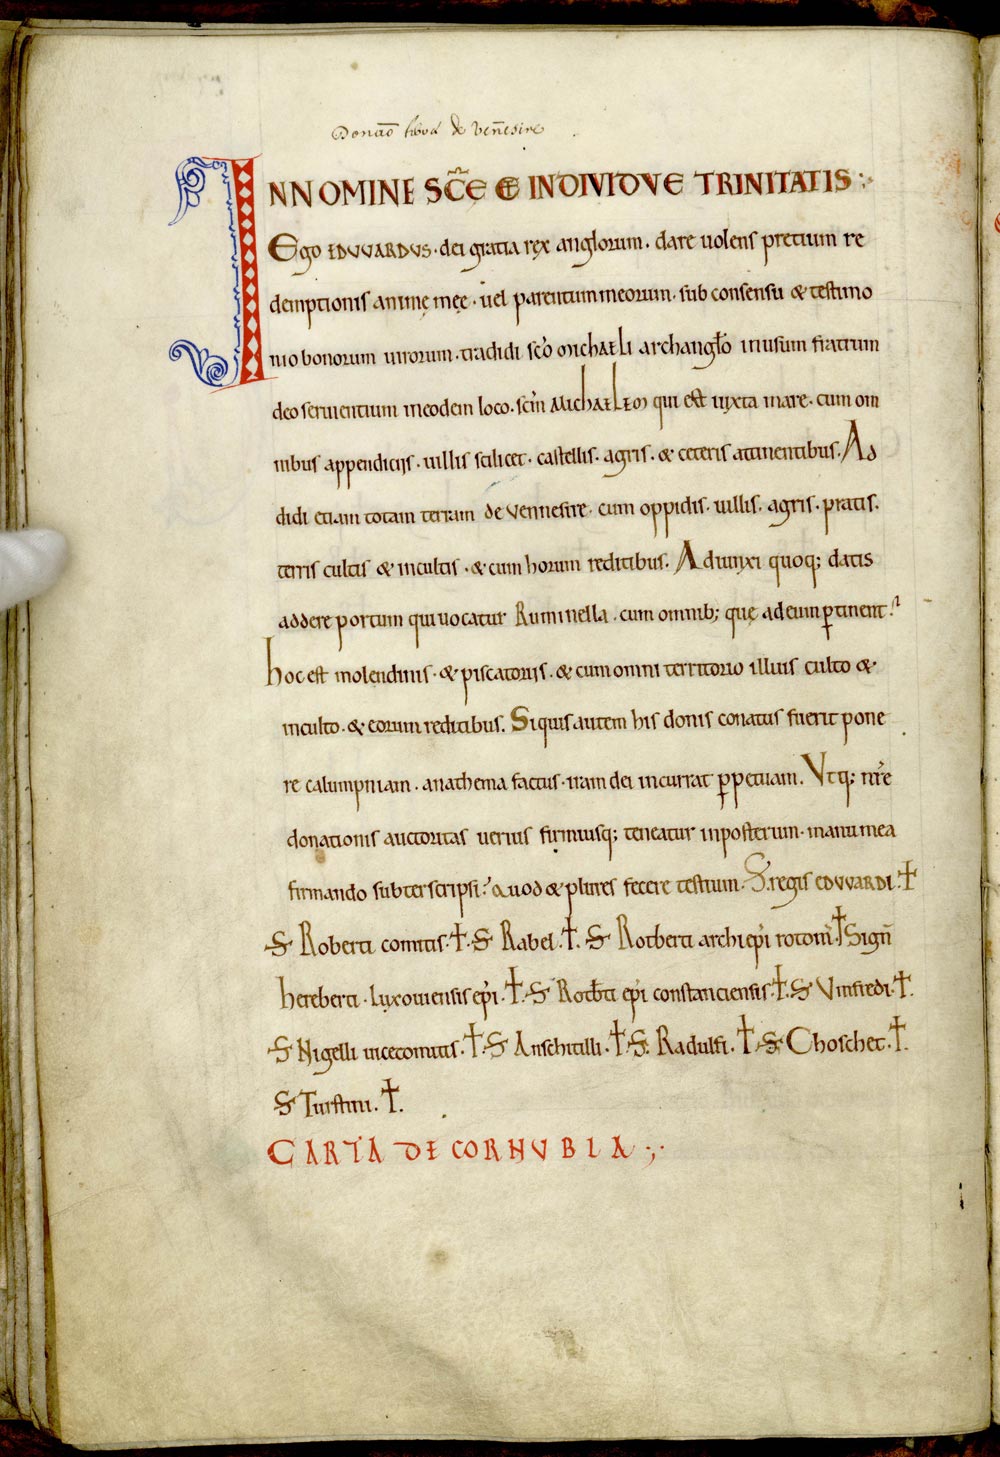 de vennesire
INNOMINE SC̄E & INDIVIDVE TRINITATIS:
Ego EDVVARDUS. dei gratia rex anglorum. dare uolens pretium re
demptionis animę meę. uel parentum meorum. sub consensu & testimo
nio bonorum uirorum. tradidi sc̄o MichaELi archangl̄o inusum fratrum
deo seruientium ineodem loco. sc̄m MichaELEm qui est iuxta mare. cum om
nibus appendiciis. uillis scilicet. castellis. agris. & ceteris attinentibus. Ad
didi etiam totam terram de vennesire. cum oppidis. uillis. agris. pratis.
terris cultis & incultis. & cum horum reditibus. Adiunxi quoq; datis
addere portum qui uocatur Ruminella. cum omnib; quę ad eum ꝑtinent.
hoc est molendinis. & piscatoriis. & cum omni territorio illius culto &
inculto. & eorum reditibus. Siquis autem his donis conatus fuerit pone
re calumpniam. anathema factus. iram dei incurrat ꝑpetuam. Vtq; nr̄e
donationis auctoritas uerius firmiusq; teneatur inposterum. manu mea
firmando subterscripsi. Quod & plures fecere testium. S. regis EDVVARDI. ✝
S Roberti comitis. ✝. S Rabel. ✝. S Rotberti archiep̄i rotom̄. ✝ Sign̄
hereberti. luxouiensis ep̄i. ✝. S Rotb̄ti ep̄i constanciensis. ✝. S Vinfredi. ✝.
S Nigelli uicecomitis. ✝. S Anschitilli. ✝. S. Radulfi. ✝. S Choschet. ✝.
S Turstini. ✝.
CARTA DE CORNVBIA